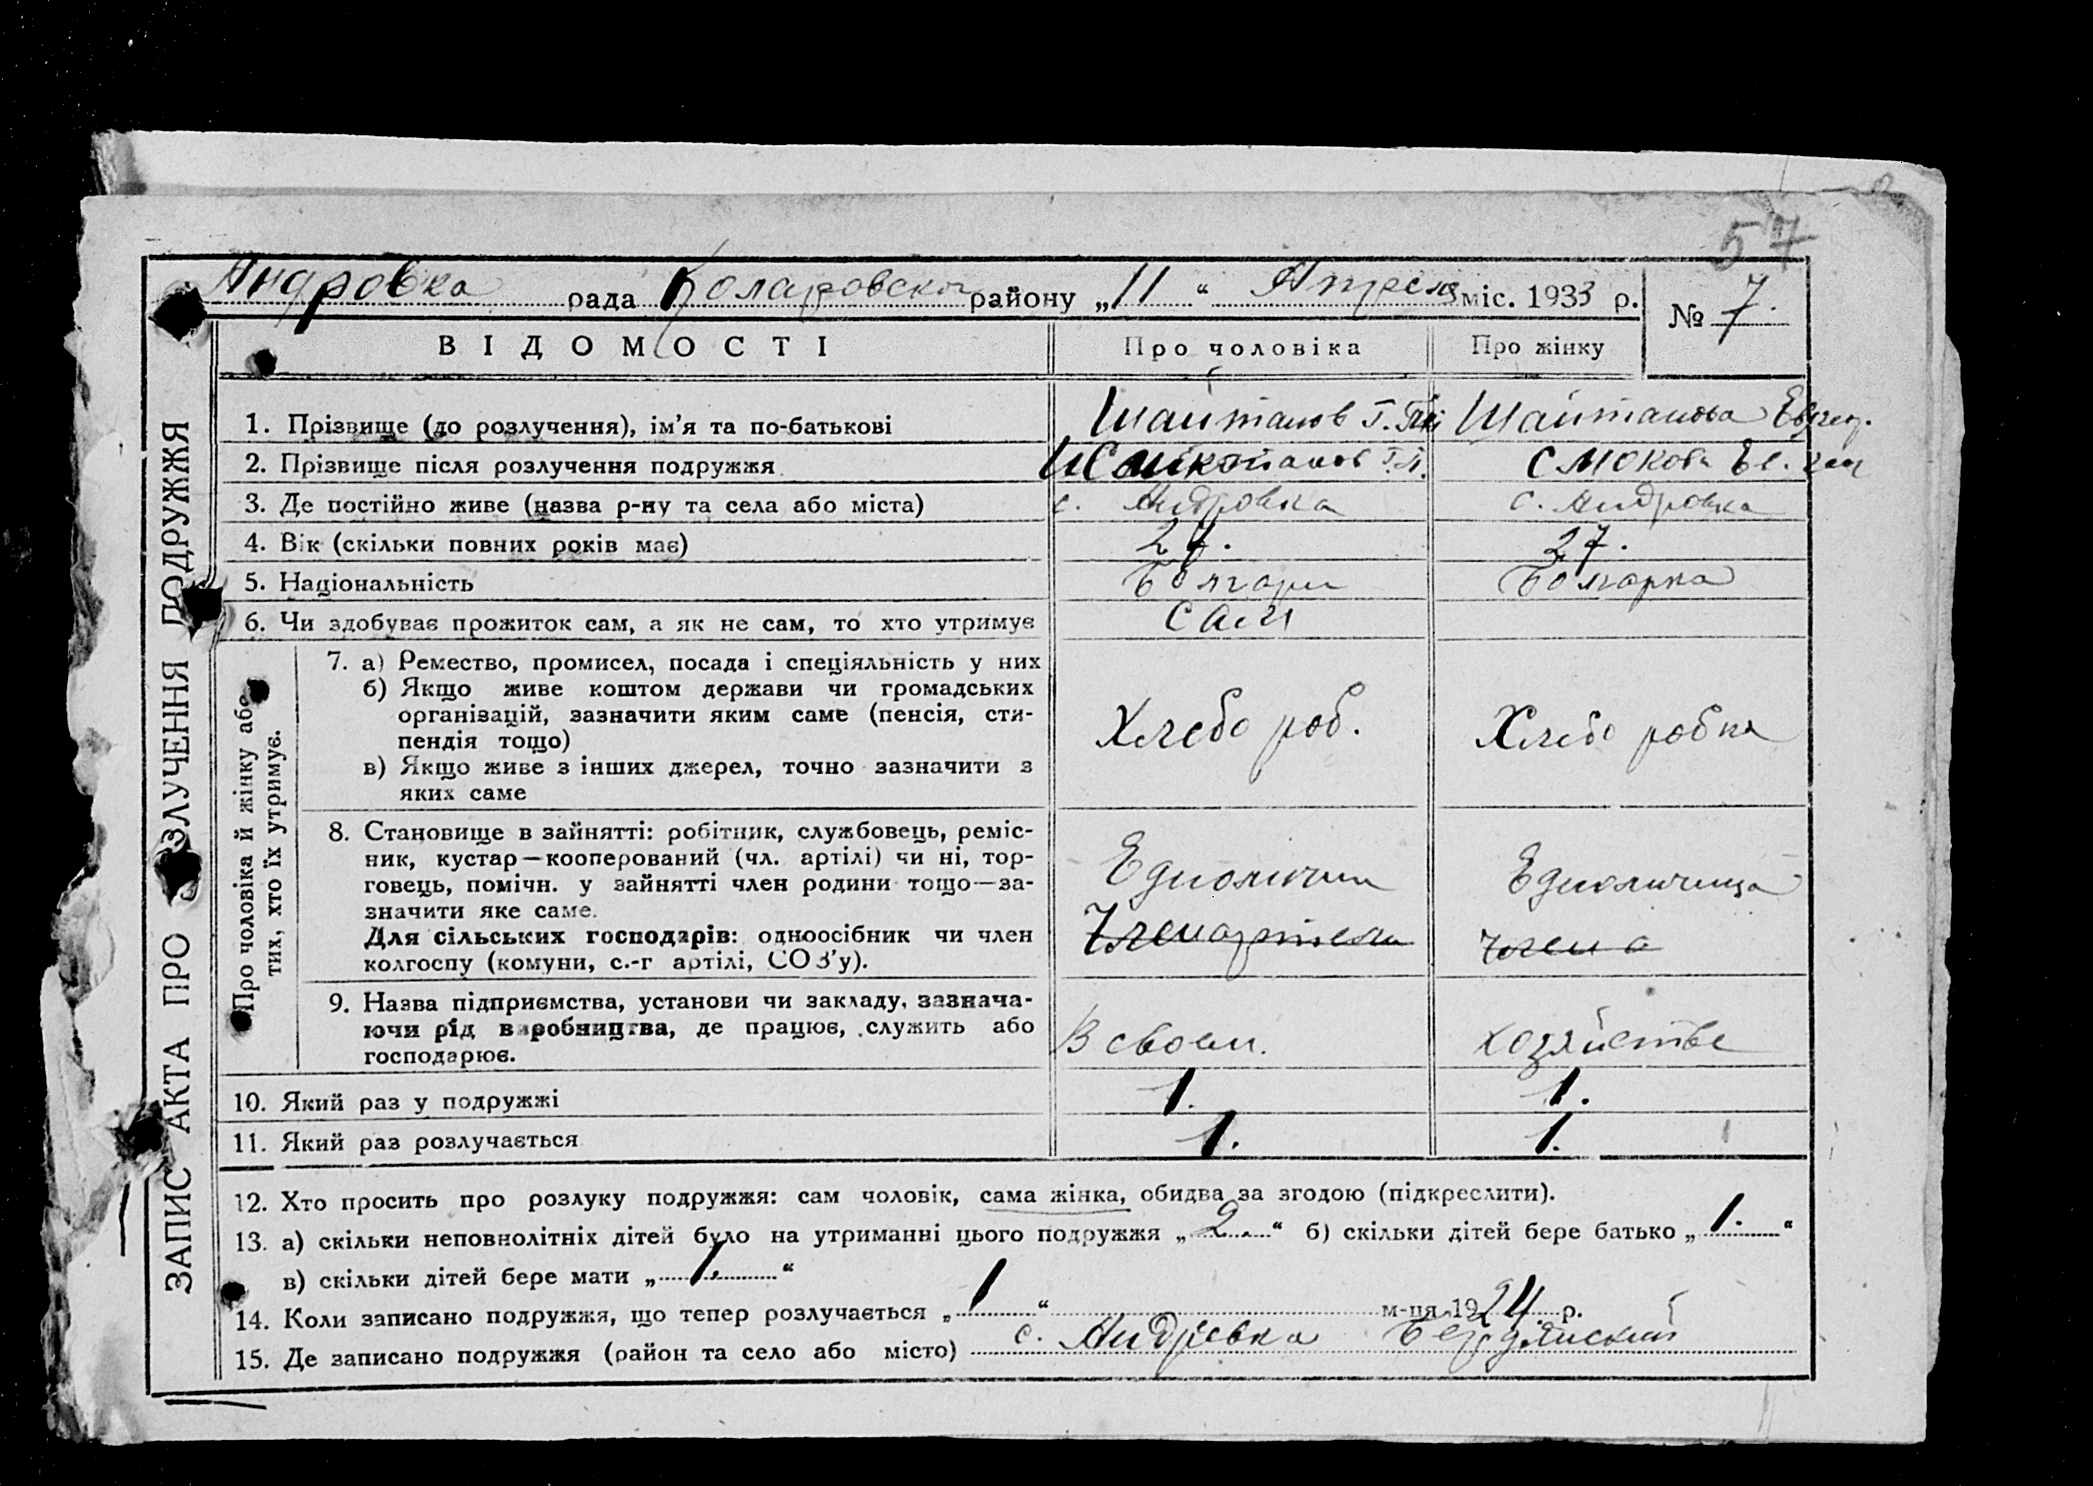 57
Андровка рада Коларовского району „11“ Апреля міс. 1933 р.
№ 7.
ВІДОМОСТІ
Про чоловіка
Про жінку
ЗАПИС АКТА ПРО РОЗЛУЧЕННЯ ПОДРУЖЖЯ
1. Прізвище (до розлучення), ім’я та по-батькові Шайтанов Г. Шайтанова
2. Прізвище після розлучення подружжя Смокова
3. Де постійно живе (назва р-ну та села або міста) с. Андровка с. Андровка
4. Вік (скільки повних років має) 27. 27.
5. Національність Болгари Болгарка
6. Чи здобуває прожиток сам, а як не сам, то хто утримує сам
Про чоловіка й жінку або
тих, хто їх утримує.
7. а) Ремество, промисел, посада і спеціяльність у них
б) Якщо живе коштом держави чи громадських
організацій, зазначити яким саме (пенсія, сти-
пендія тощо)
в) Якщо живе з інших джерел, точно зазначити з
яких саме
Хлебо роб. Хлебо робка
8. Становище в зайнятті: робітник, службовець, реміс-
ник, кустар—кооперований (чл. артілі) чи ні, тор-
говець, помічн. у зайнятті член родини тощо—за-
значити яке саме.
Для сільських господарів: одноосібник чи член
колгоспу (комуни, с.-г артілі, СОЗ’у).
Единолични Единоличница
Член артели члена
9. Назва підприємства, установи чи закладу, зазнача-
ючи рід виробництва, де працює, служить або
господарює.
В своем. хозяйстве
10. Який раз у подружжі 1. 1.
11. Який раз розлучається 1. 1.
12. Хто просить про розлуку подружжя: сам чоловік, сама жінка, обидва за згодою (підкреслити).
13. а) скільки неповнолітніх дітей було на утриманні цього подружжя „2.“ б) скільки дітей бере батько „1.“
в) скільки дітей бере мати „1.“
14. Коли записано подружжя, що тепер розлучається „1“ м-ця 1924 р.
15. Де записано подружжя (район та село або місто) с. Андревка Бердянский